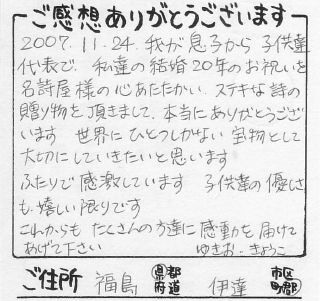 ご感想ありがとうございます
2007.11.24. 我が息子から 子供達
代表で、私達の結婚20年のお祝いを
名詩屋様の心あたたかい、ステキな詩の
贈り物を頂きまして、本当にありがとうござ
います 世界にひとつしかない宝物として
大切にしていきたいと思います
ふたりで感激しています 子供達の優しさ
も嬉しい限りです
これからも たくさんの方達に感動を届けて
あげて下さい ゆきお・きょうこ
ご住所 福島 都道府県 伊達 市区町郡